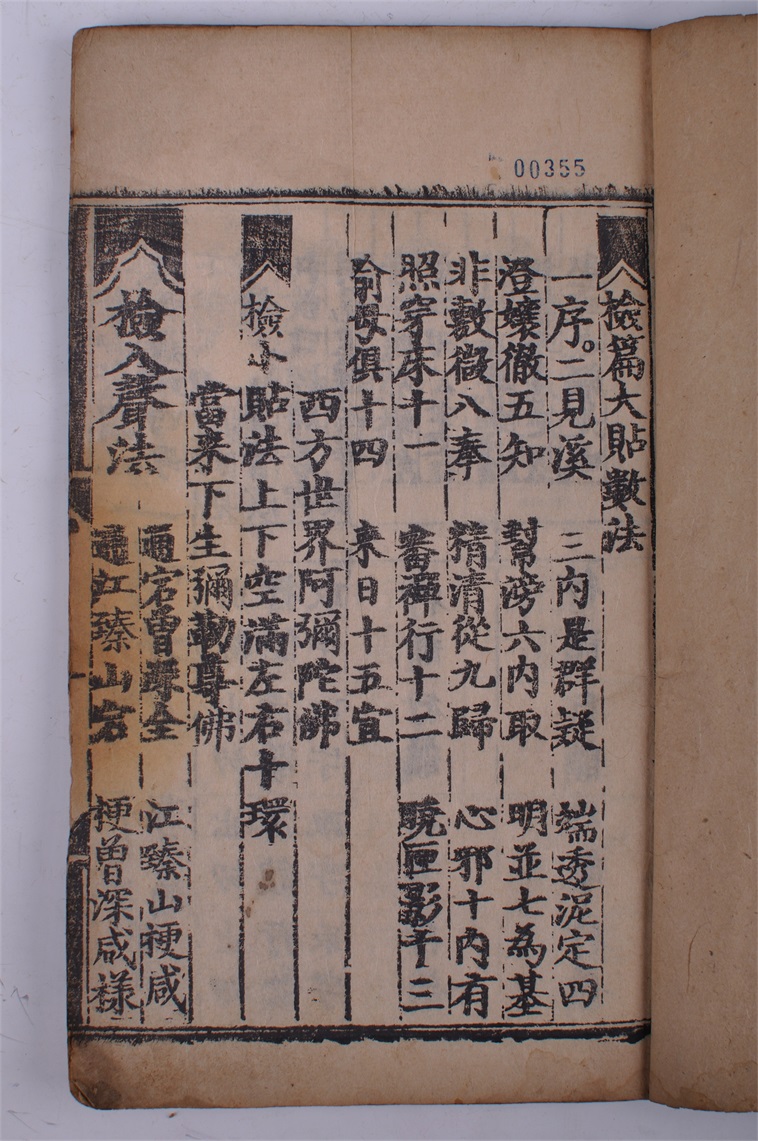 00355
檢篇大貼數法
一序。二見溪 三內是群疑 端透泥定四
澄孃徹五知 幫滂六內取 明並七為基
非敷微八奉 精清從九歸 心邪十內有
照穿床十一 審禪行十二 曉匣影十三
俞母俱十四 來日十五宜
西方世界阿彌陀佛
檢小貼法上下空滿左右十環
當來下生彌勒尊佛
檢入聲法
通宕曾臻全 江臻山梗咸
江臻山宕 梗曾深咸樣